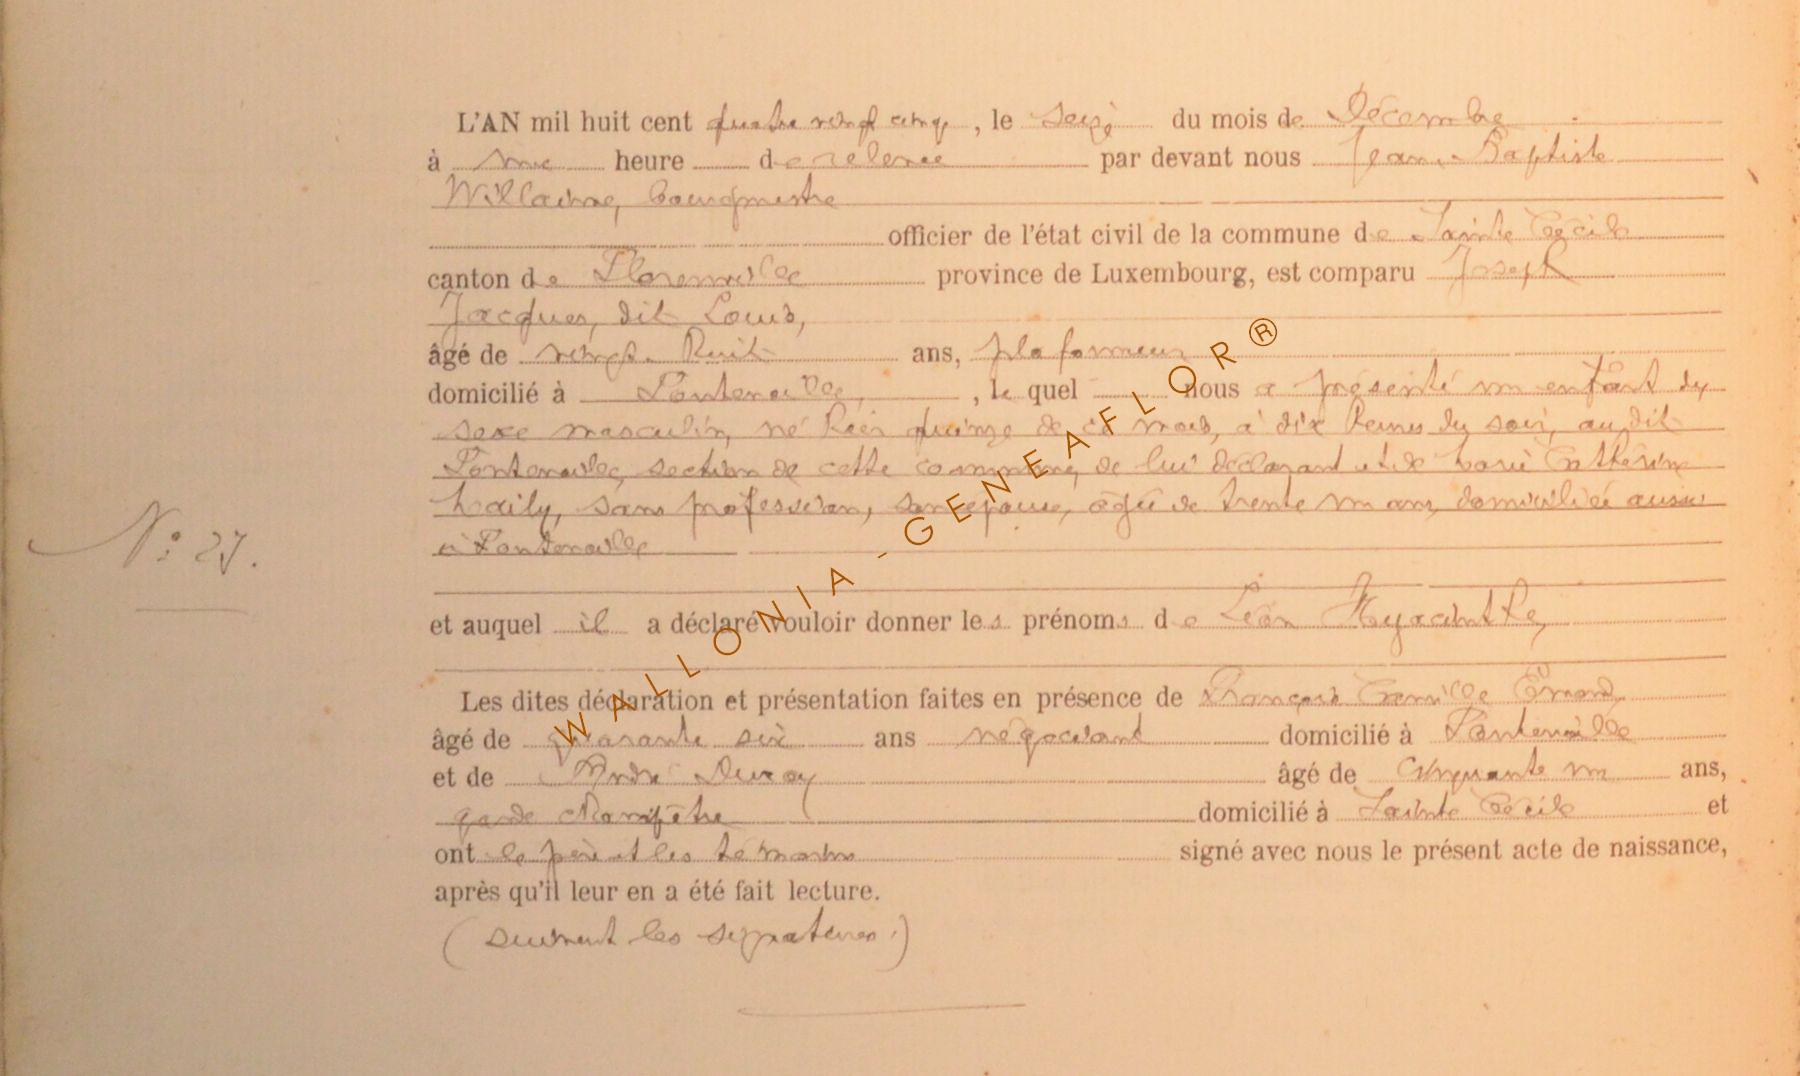 L'AN mil huit cent quatre vingt cinq, le seize du mois de Décembre
à une heure de relevée par devant nous Jean-Baptiste
Willaime, bourgmestre
officier de l'état civil de la commune de Sainte Cécile
canton de Florenville province de Luxembourg, est comparu Joseph
Jacques, dit Louis,
âgé de vingt-huit ans, plafonneur
domicilié à Fontenoille, le quel nous a présenté un enfant du
sexe masculin, né hier quinze de ce mois, à dix heures du soir, au dit
Fontenoille, section de cette commune, de lui déclarant et de Marie Cathérine
Mailly, sans profession, son épouse, âgée de trente un ans, domiciliée aussi
à Fontenoille
N° 27.
et auquel il a déclaré vouloir donner les prénoms de Léon Hyacinthe,
Les dites déclaration et présentation faites en présence de François Camille Émond,
âgé de quarante six ans négociant domicilié à Fontenoille
et de André Duroy âgé de Cinquante un ans,
garde champêtre domicilié à Sainte Cécile et
ont le père et les témoins signé avec nous le présent acte de naissance,
après qu'il leur en a été fait lecture.
(suivent les signatures.)
WALLONIA-GENEAFLOR®